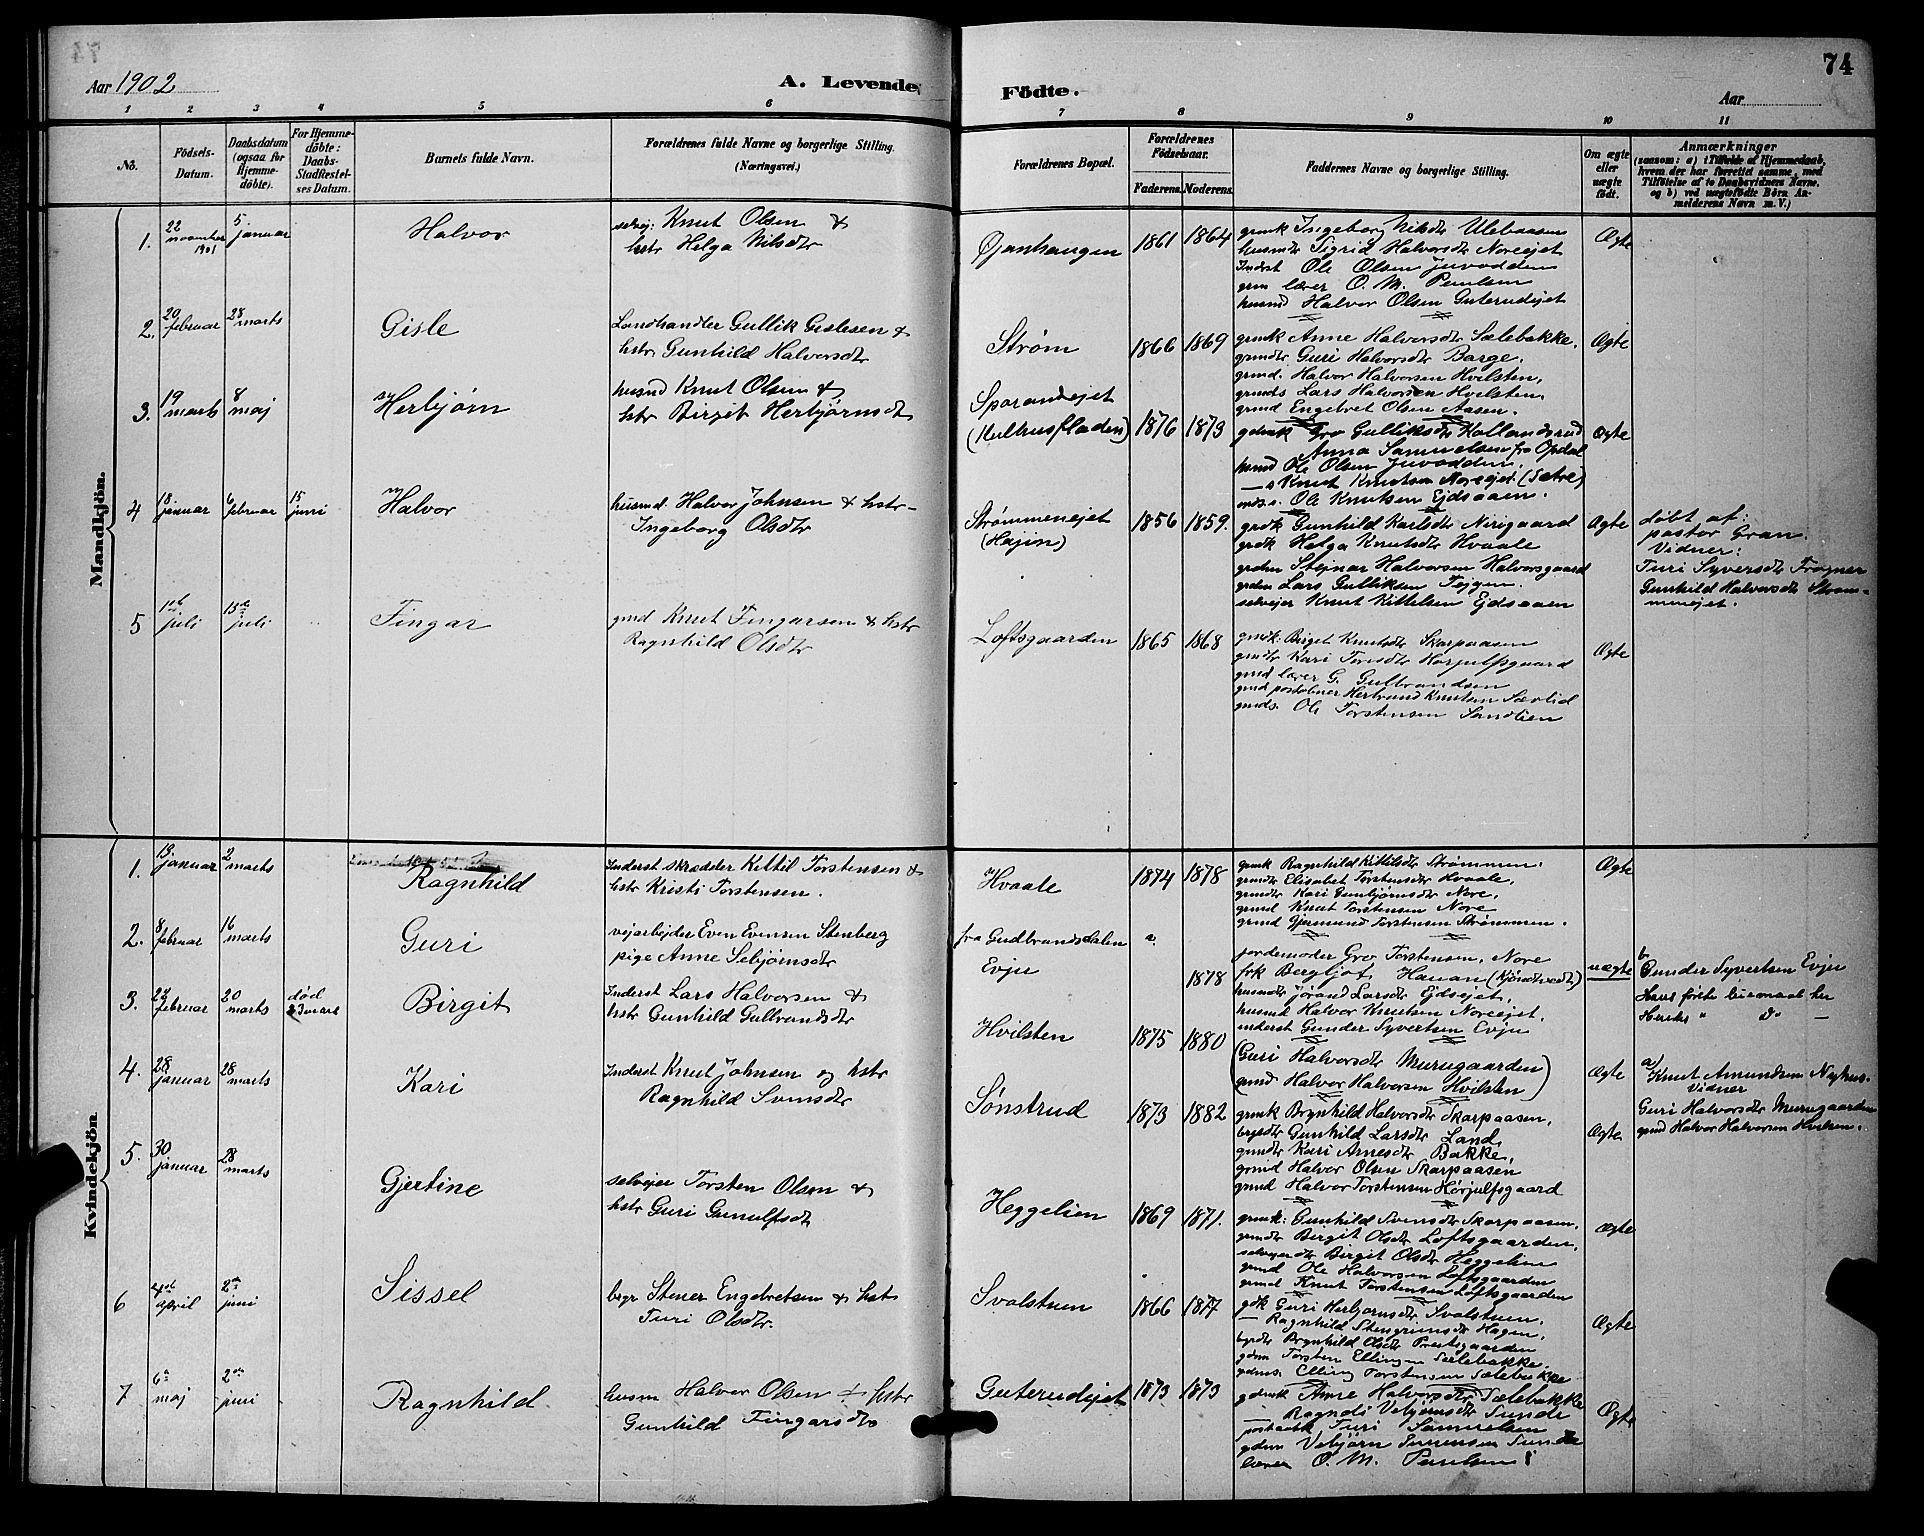 74
Aar 1902
A. Levende
Födte.
Aar
1 2 3 4 5 6 7 8 9 10 11
No.
Födsels-Datum.
Daabsdatum (ogsaa for Hjemmedöbte).
For Hjemmedöbte: Daabs-Stadfestelses Datum.
Barnets fulde Navn.
Forældrenes fulde Navne og borgerlige Stilling. (Næringsvei.)
Forældrenes Bopæl.
Forældrenes Födselsaar.
Faderens. Moderens.
Faddernes Navne og borgerlige Stilling.
Om ægte eller uægte födt.
Anmærkninger
(saasom: a) i Tilfælde af Hjemmedaab,
hvem der har forrettet samme, med
Tilföielse af to Daabsvidners Navne,
og b) ved uægtefödte Börn Anmelderens Navn m. V.)
Mandkjön.
1. 22 november 1901
5 januar
Halvor
selvej. Knut Olsen &
hstr Helga Nilsdtr
Øjanhaugen
1861 1864
gmk Ingeborg Nilsdtr Ulebaasen
husmdtr Sigrid Halvorsdtr Noreejet
Inderst Ole Olsen Juvodden
grm lærer O. M. Paulsen
husmd Halvor Olsen Guterudejet
Ægte
2. 20 februar
23 marts
Gisle
Landhandler Gullik Gislesen &
hstr. Gunhild Halvorsdtr
Strøm
1866 1869
gmk Anne Halvorsdtr Sælebakke.
grmdtr Guri Halvorsdtr Barge.
grmd. Halvor Halvorsen Hvilsten,
grmds Lars Halvorsen Hvilsten,
grmd Engebret Olsen Aasen.
Ægte
3. 19 marts
8 maj
Herbjørn
husmd Knut Olsen &
hstr Birgit Herbjørnsdtr
Sporanejet
1876 1873
gdmk Gro Gulliksdtr Hallandsrud
Anna Samuelsen fra Opdal
husmd Ole Olsen Juvodden.
— s Knut Knutsen Noreejet (Sætre)
Ole Knutsen Ejdsaaen.
Ægte
4 18 januar
6 februar
15 juni
Halvor
husmd. Halvor Johnsen & hstr
Ingeborg Olsdtr
Strømmenejet
(Hajin)
1856 1859.
grdk Gunhild Karlsdtr Nirigaard
grdk Helga Knutsdtr Hvaale
grdm Stejnar Halvorsen Halvorsgaard
grdm Lars Gulliksen Tejgen.
selvejer Knut Kittelsen Ejdsaaen
Ægte
döbt af
pastor Gran.
Vidner:
Turi Syversdtr Fragner
Gunhild Halvorsdtr Strømmenejet.
5 11te juli
13de juli
Fingar
gmd Knut Fingarsen & hstr
Ragnhild Olsdtr
Loftsgaarden
1865 1868
gmdk. Birget Knutsdtr Skarpaasen
gmdtr Kari Torsdtr Hørjulfsgaard
gmd lærer G. Gulbrandsen
gmd postaabner Herbrand Knutsen Sævlid
gmds. Ole Torstensen Sandlien
Ægte
Kvindekjön
1. 13. januar
2 marts
Ragnhild
Inderst skrædder Kittil Torstensen &
hstr Kristi Torstensen.
Hvaale
1874 1878
gmk Ragnhild Kittilsdtr Strømmen.
grmdtr Elisabet Torstensdtr Hvaale,
grmdtr Kari Gunbjørnsdtr Nore,
grmd Knut Torstensen Nore
grmd Gjermund Torstensen Strømmen.
Ægte
2. 8 februar
16 marts
Guri
vejarbejder Even Evensen Stenberg
pige Anne Sebjørnsdtr
fra Gudbrandsdalen
Evju
1878
jordemoder Gro Torstensen, Nore
frk Bergljot Hauan (Kjöndtvedt)
husmdtr Jørand Larsdtr Ejdsejet,
husmd Halvor Knutsen Noreejet.
inderst Gunder Syvertsen Evju
uægte
b
Gunder Syvertsen Evju
Hans første
3. 27 februar
20 marts
död 23 marts
Birgit
Inderst Lars Halvorsen &
hstr Gunhild Gulbrandsdtr
Hvilsten
1875 1880
(Guri Halvorsdtr Murugaarden
gmd Halvor Halvorsen Hvilsten)
Ægte
a)
Knut Amundsen Nyhus.
Vidner
Guri Halvorsdtr Murugaarden
gmd Halvor Halvorsen Hvilsten.
4. 28 januar
28 marts
Kari
Inderst Knut Johnsen og hstr
Ragnhild Svensdtr
Sønstrud
1873 1882
grmk Brynhild Halvorsdtr Skarpaasen,
Gunhild Larsdtr Land,
gmdtr Kari Arnesdtr Bakke,
grmd Halvor Olsen Skarpaasen
grmd Halvor Torstensen Hørjulfsgaard
Ægte
5. 30 januar
28 marts
Gjertine
selvejer Torsten Olsen &
hstr Guri Gunulfsdt
Heggelien
1869 1871.
grmk: Gunhild Svensdtr Skarpaasen,
grmdtr Birgit Olsdtr Loftsgaarden,
selvejerdtr Birgit Olsdtr Heggelien
grmd Ole Halvorsen Loftsgaarden
grmd Knut Torstensen Loftsgaarden
Ægte
6 april
2den juni
Sissel
Stener Engebretsen & hst
Turi Olsdtr.
Svalstuen
1866 1877
gdk Guri Herbjørnsdtr Svalstuen.
— Ragnhild Stengrimsdtr Hagen,
Brynhild Olsdtr Prestgaarden
gdm Torsten Ellingsen Sælebakke,
gdms. Elling Torstensen Sælebakke
Ægte
7 6te maj
2den juni
Ragnhild
husm Halvor Olsen & hstr
Gunhild Fingarsdtr
Guterudejet
1873 1873
gdmk Anne Halvorsdtr Sælebakke
— Ragndi Vebjørnsdtr Sunde
Turi Samuelsen
gdm Vebjørn Sunde
lærer O. M. Paulsen
Ægte